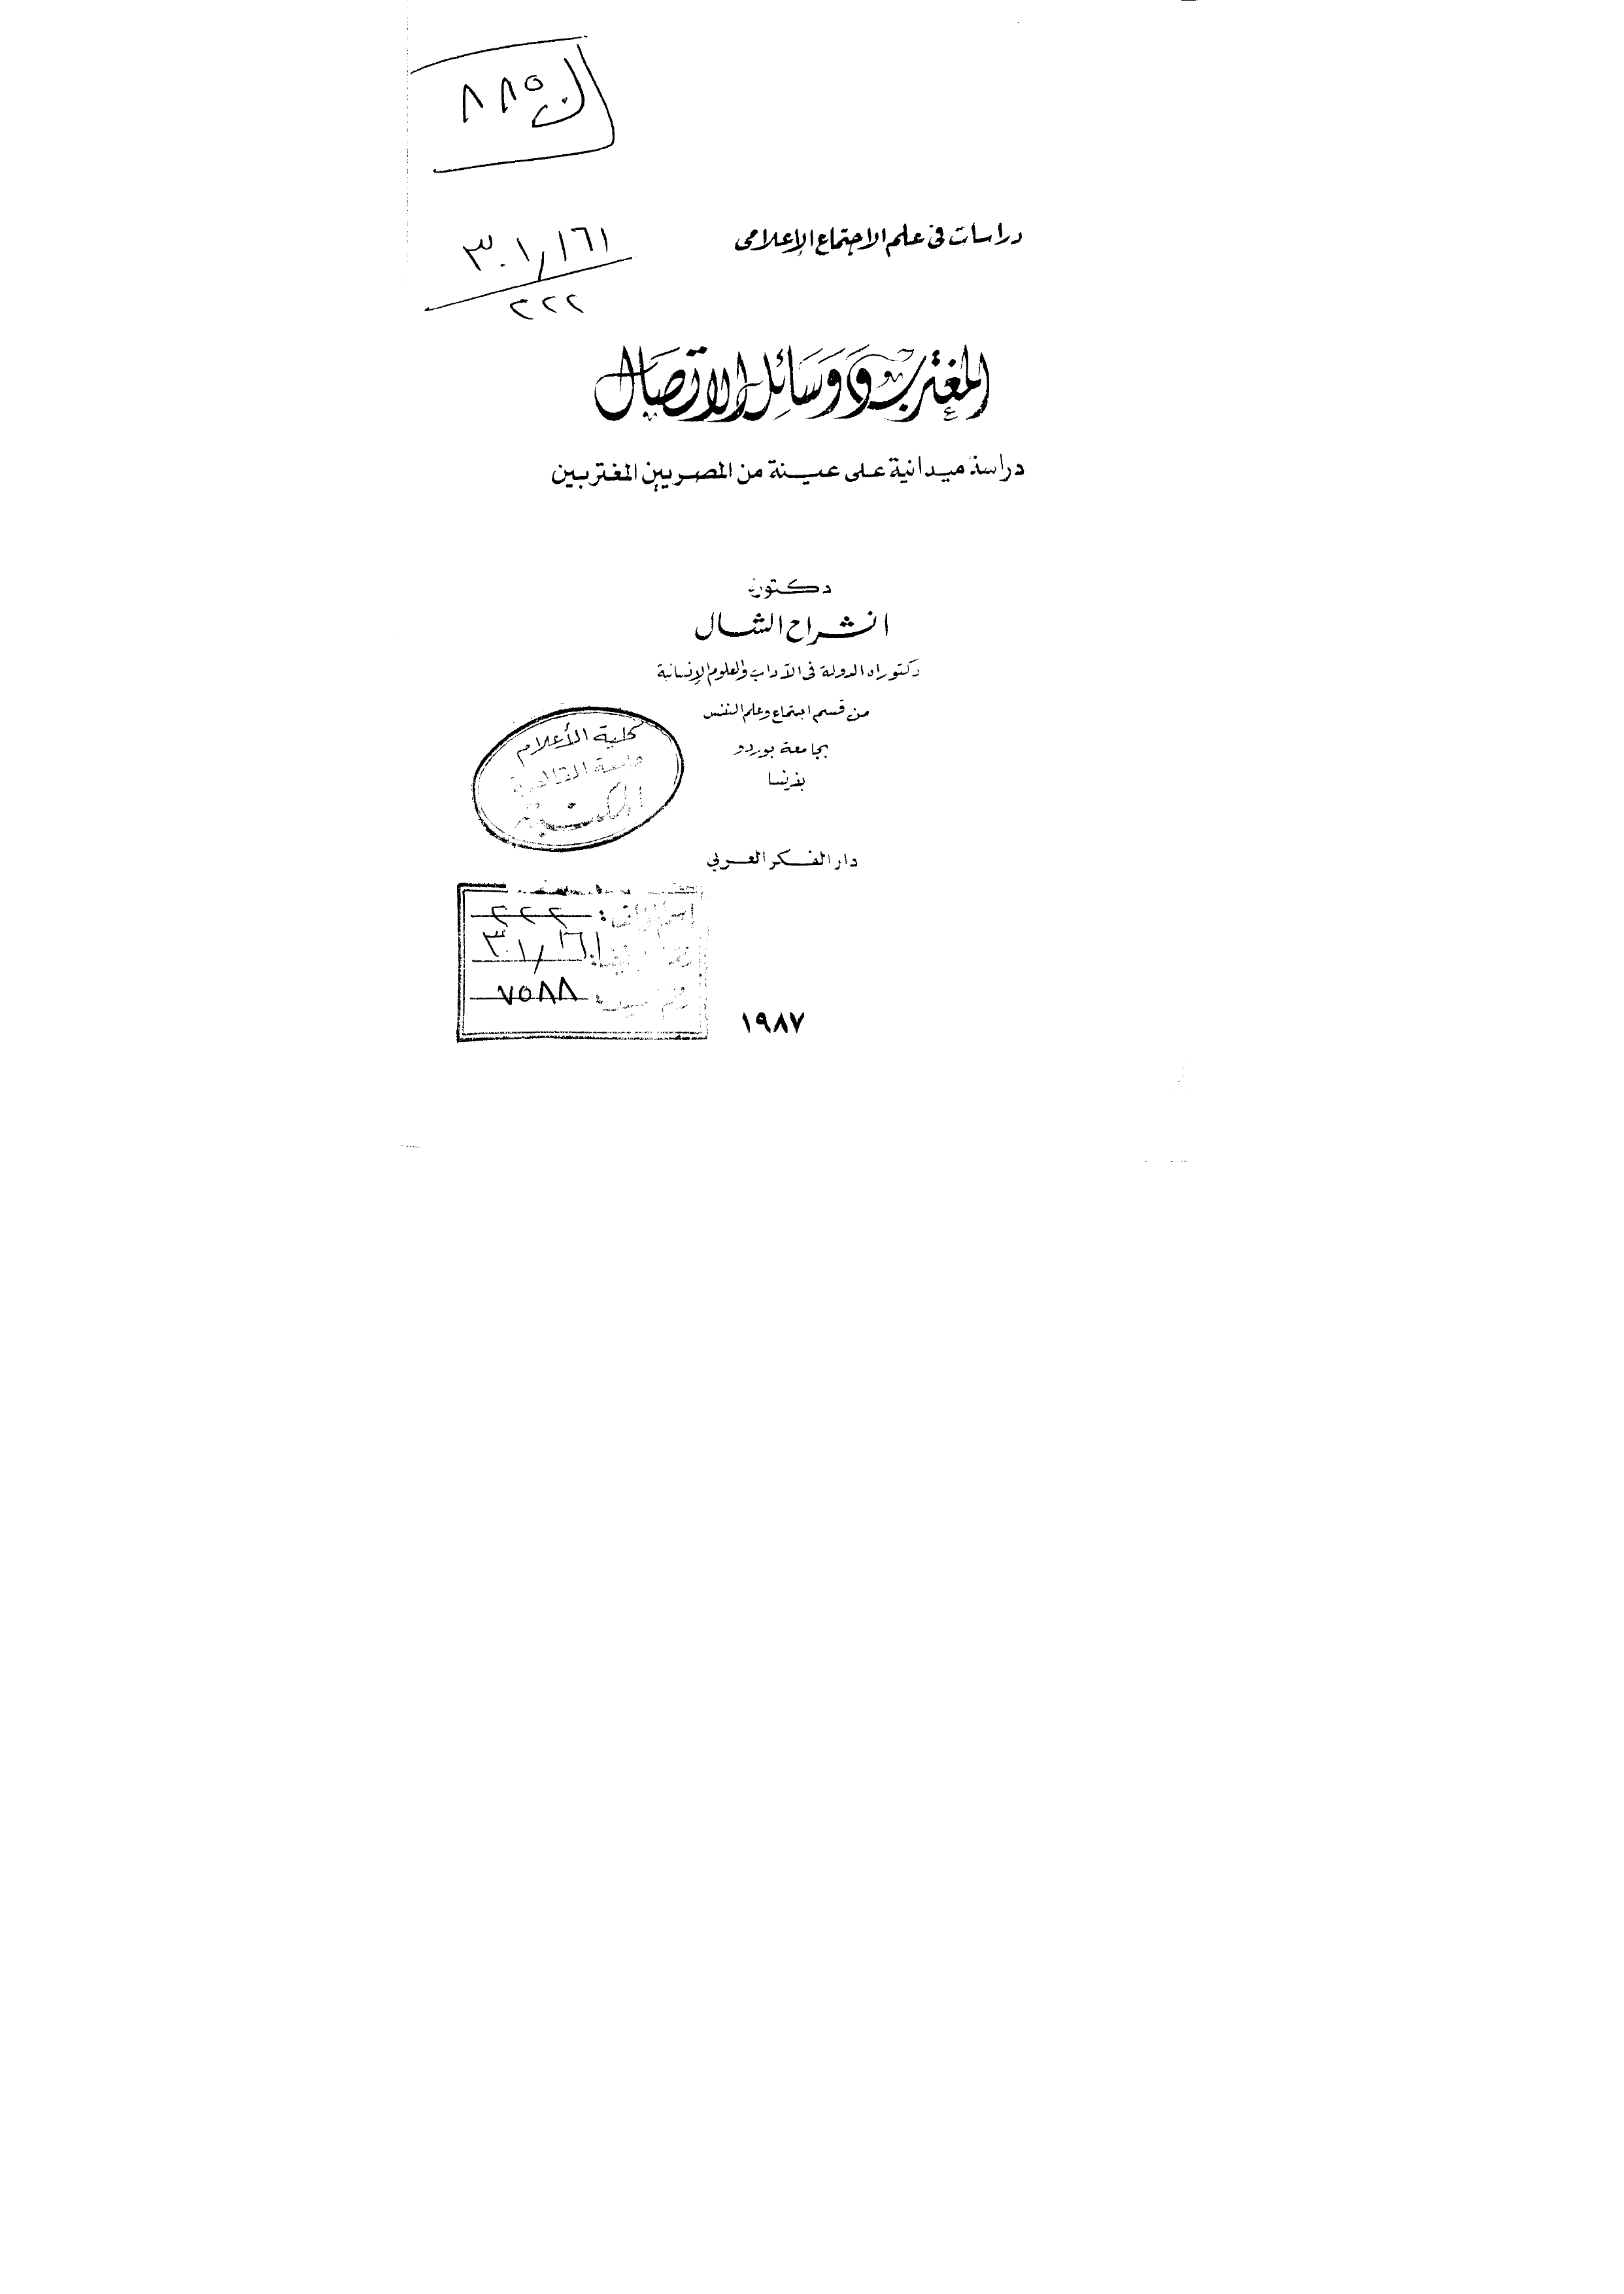 ٨٨٥
دراسات فى علم الاجتماع الإعلامى
٣٠١/١٦١
٢٢٢
المغترب ووسائل الاتصال
دراسة ميدانية على عينة من المصريين المغتربين
دكتورة
انشراح الشال
دكتوراه الدولة فى الآداب والعلوم الإنسانية
من قسم اجتماع وعلم النفس
بجامعة بوردو
بفرنسا
كلية الأعلام
جامعة القاهرة
المكتبة
دار الفكر العربي
٢٢٢
٣٠١/١٦١
٧٥٨٨
١٩٨٧